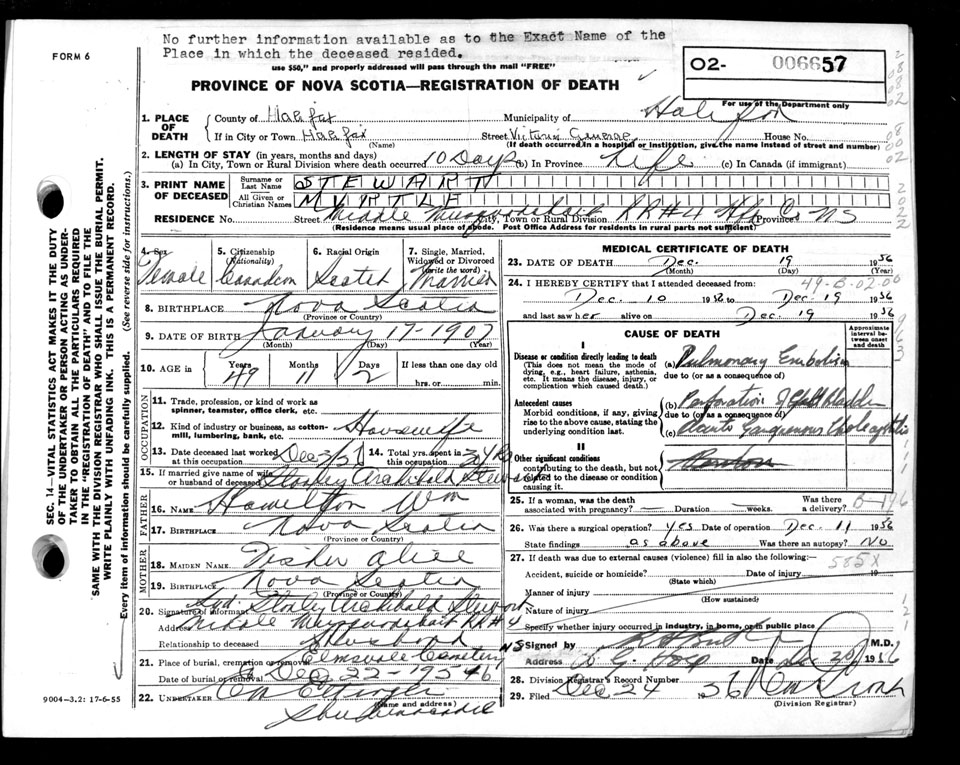 FORM 6
No further information available as to the Exact Name of the
Place in which the deceased resided.
use $50," and properly addressed will pass through the mail "FREE"
02- 006657
For use of the Department only
PROVINCE OF NOVA SCOTIA—REGISTRATION OF DEATH
1. PLACE OF DEATH
County of Halifax Municipality of Halifax
If in City or Town Halifax (Name) Street Victoria General House No.
(If death occurred in a hospital or institution, give the name instead of street and number)
2. LENGTH OF STAY (in years, months and days)
(a) In City, Town or Rural Division where death occurred 10 Days (b) In Province Life (c) In Canada (if immigrant)
3. PRINT NAME OF DECEASED
Surname or Last Name STEWART
All Given or Christian Names MYRTLE
RESIDENCE No. Street Middle Musquodoboit City, Town or Rural Division RR#4 Hfx Co Province NS
(Residence means usual place of abode. Post Office Address for residents in rural parts not sufficient)
4. Sex Female
5. Citizenship (Nationality) Canadian
6. Racial Origin Scotch
7. Single, Married, Widowed or Divorced (write the word) Married
8. BIRTHPLACE Nova Scotia
(Province or Country)
9. DATE OF BIRTH January 17-1907
(Month) (Day) (Year)
10. AGE in Years 49 Months 11 Days 2 If less than one day old
hrs. or min.
OCCUPATION
11. Trade, profession, or kind of work as
spinner, teamster, office clerk, etc.
12. Kind of industry or business, as cotton-
mill, lumbering, bank, etc. Housewife
13. Date deceased last worked at this occupation
14. Total yrs. spent in this occupation 30 yrs
15. If married give name of wife
or husband of deceased Stanley Archibald Stewart
FATHER
16. NAME Hamilton Wm
17. BIRTHPLACE Nova Scotia
(Province or Country)
MOTHER
18. MAIDEN NAME Fisher Alice
19. BIRTHPLACE Nova Scotia
(Province or Country)
20. Signature of informant Sgd. Stanley Archibald Stewart
Address Middle Musquodoboit RR#4
Relationship to deceased Husband
21. Place of burial, cremation or removal Elmsville Cemetery NS
Date of burial or removal Dec 22-1956
22. UNDERTAKER
(Name and address)
Shubenacadie
MEDICAL CERTIFICATE OF DEATH
23. DATE OF DEATH Dec. 19 1956
(Month) (Day) (Year)
24. I HEREBY CERTIFY that I attended deceased from:
49-B-02.00
Dec. 10 1956 to Dec. 19 1956
and last saw her alive on Dec. 19 1956
CAUSE OF DEATH
Approximate interval between onset and death
I
Disease or condition directly leading to death
(This does not mean the mode of dying, e.g., heart failure, asthenia, etc. It means the disease, injury, or complication which caused death.)
(a) Pulmonary Embolism
due to (or as a consequence of)
Antecedent causes
Morbid conditions, if any, giving rise to the above cause, stating the underlying condition last.
(b) Perforation of Gall bladder
due to (or as a consequence of)
(c) Acute Gangrenous Cholecystitis
II
Other significant conditions
contributing to the death, but not related to the disease or condition causing it.
25. If a woman, was the death
associated with pregnancy? — Duration — weeks. Was there a delivery?
26. Was there a surgical operation? yes Date of operation Dec. 11 1956
State findings as above Was there an autopsy? No
27. If death was due to external causes (violence) fill in also the following:—
585X
Accident, suicide or homicide? Date of injury 19
(State which)
Manner of injury
(How sustained)
Nature of injury
Specify whether injury occurred in industry, in home, or in public place
Signed by M.D.
Address V. G. Hosp Date Dec 20 1956
28. Division Registrar's Record Number
29. Filed Dec 24 1956
(Division Registrar)
SEC. 14—VITAL STATISTICS ACT MAKES IT THE DUTY
OF THE UNDERTAKER OR PERSON ACTING AS UNDER-
TAKER TO OBTAIN ALL THE PARTICULARS REQUIRED
IN THE "REGISTRATION OF DEATH" AND TO FILE THE
SAME WITH THE DIVISION REGISTRAR WHO SHALL ISSUE THE BURIAL PERMIT.
WRITE PLAINLY WITH UNFADING INK. THIS IS A PERMANENT RECORD.
Every item of information should be carefully supplied. (See reverse side for instructions.)
9004—3.2: 17-6-55